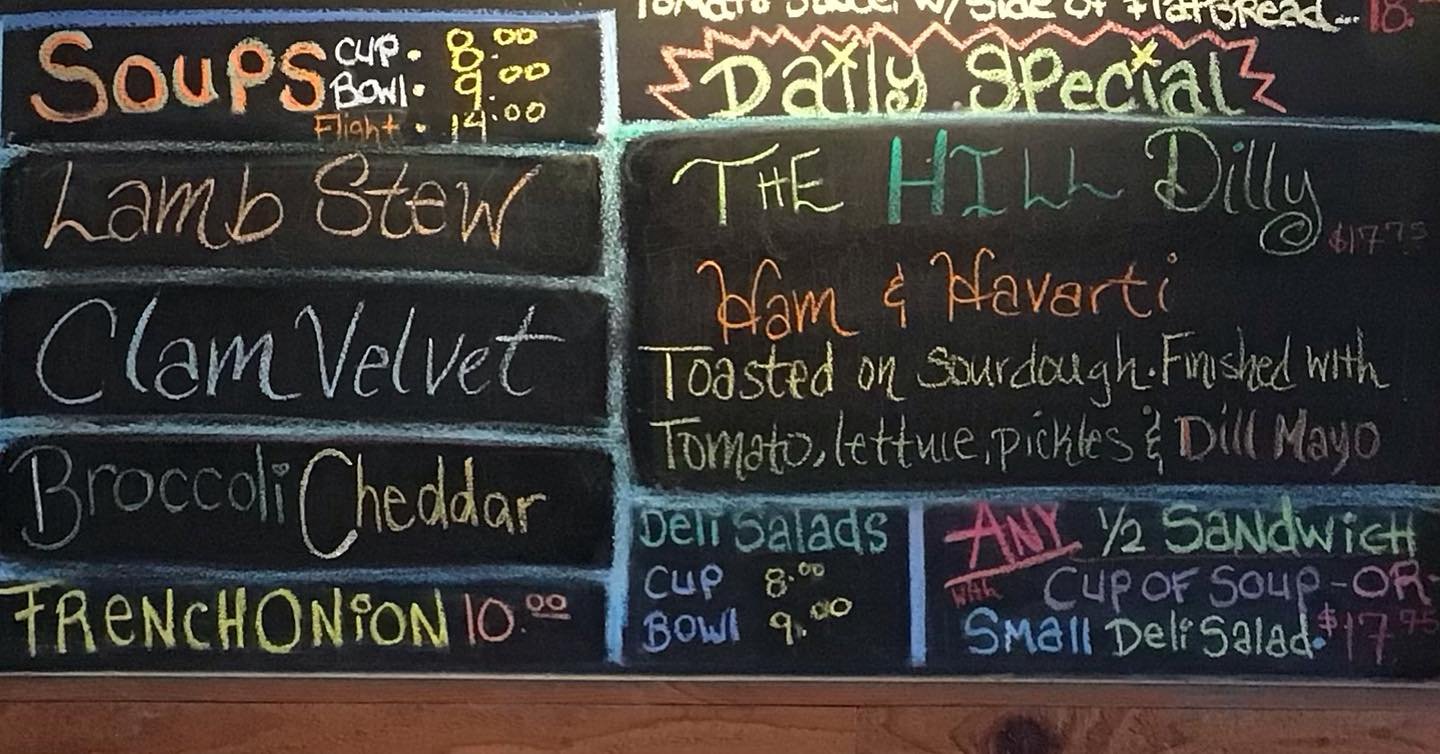 Soups
CUP. 8.00
BOWl. 9.00
Flight. 14.00
Lamb Stew
Clam Velvet
Broccoli Cheddar
FRENCH ONiON 10.00
Tomato Sauce w/Side of FlatBRead... 18.
Daily Special
THE HILL Dilly $17.75
Ham & Havarti
Toasted on Sourdough. Finished with
Tomato, lettuce, pickles & Dill Mayo
Deli Salads
CUP 8.00
BOWl 9.00
ANY 1/2 SANDWiCH
With CUP OF SOUP -OR-
SMall Deli Salad. $17.95